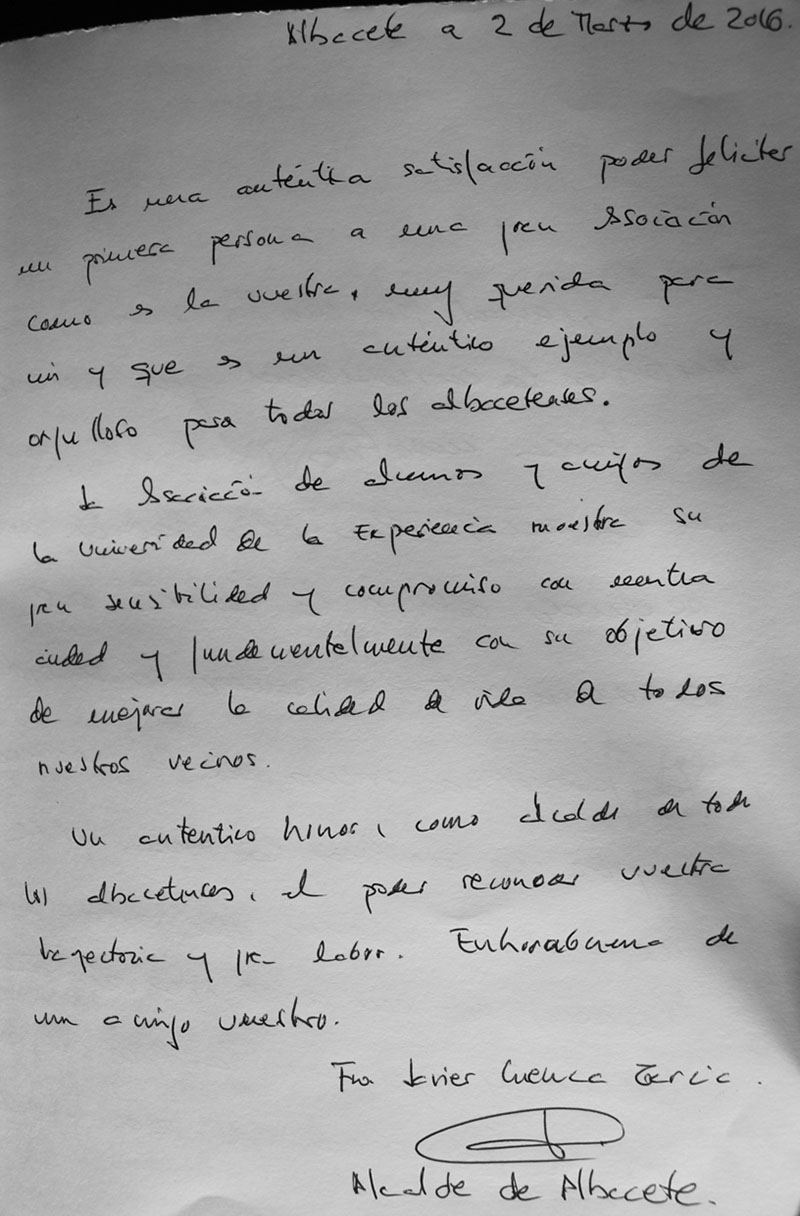 Albacete a 2 de Marzo de 2016.
Es una auténtica satisfacción poder felicitar
en primera persona a una gran Asociación
como es la vuestra, muy querida para
mi y que es un auténtico ejemplo y
orgulloso para todos los albaceteños.
La Asociación de alumnos y amigos de
la Universidad de la Experiencia muestra su
gran sensibilidad y compromiso con nuestra
ciudad y fundamentalmente con su objetivo
de mejorar la calidad de vida de todos
nuestros vecinos.
Un autentico honor, como alcalde de todos
los albaceteños, el poder reconocer vuestra
trayectoria y gran labor. Enhorabuena de
un amigo vuestro.
Fco Javier Cuenca García.
Alcalde de Albacete.